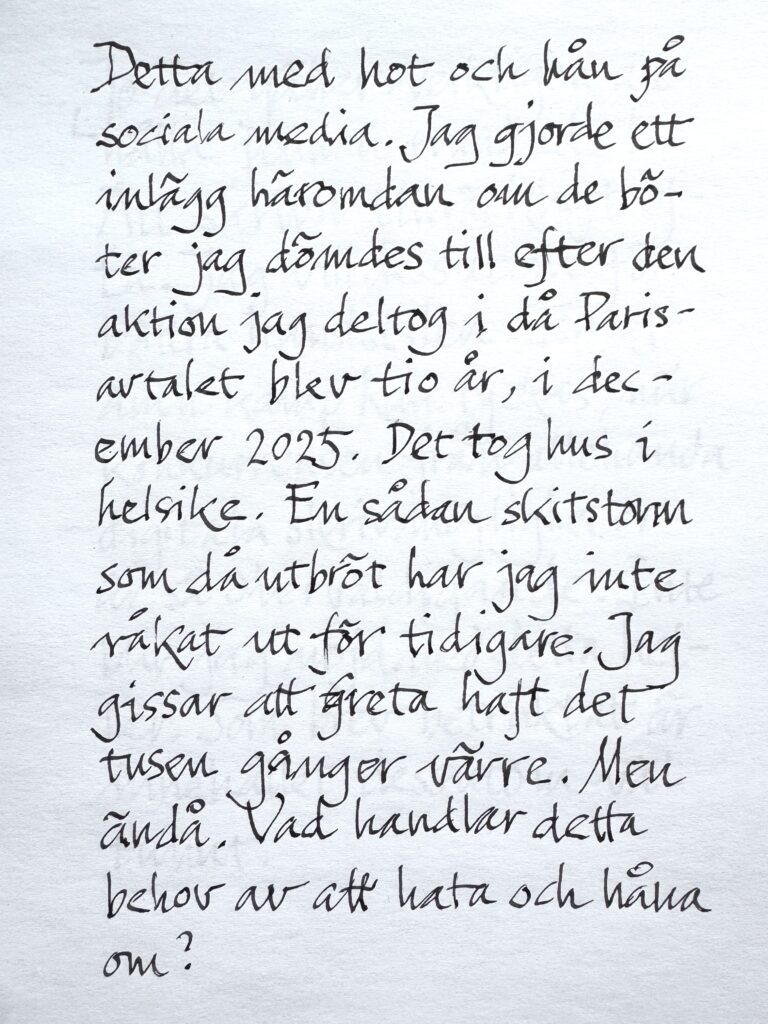 Detta med hot och hån på
sociala media. Jag gjorde ett
inlägg häromdan om de bö-
ter jag dömdes till efter den
aktion jag deltog i då Paris-
avtalet blev tio år, i dec-
ember 2025. Det tog hus i
helsike. En sådan skitstorm
som då utbröt har jag inte
råkat ut för tidigare. Jag
gissar att Greta haft det
tusen gånger värre. Men
ändå. Vad handlar detta
behov av att hata och håna
om?